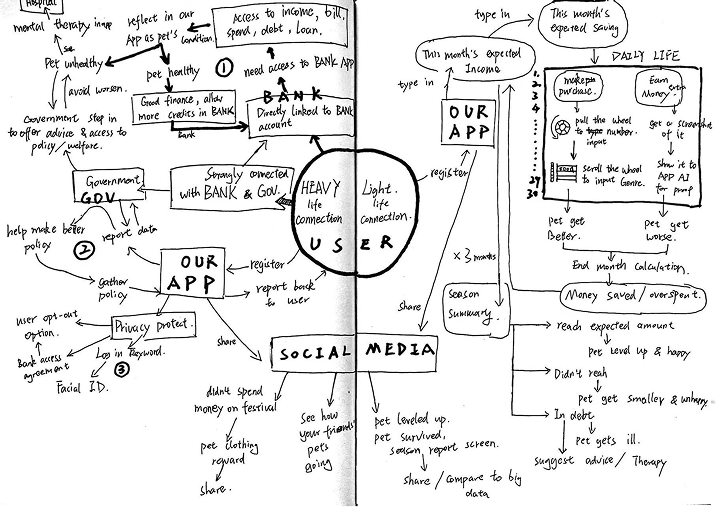 Hospital
mental therapy
reflect in our
App as pet's condition.
Access to income, bill,
spend, debt, loan.
Pet unhealthy
pet healthy
1
need access to BANK App
avoid worsen.
Good finance, allow
more credits in BANK
Bank
BANK
Directly linked to BANK
account
Government step in
to offer advice & access to
policy/welfare.
Government
GOV
Strongly connected
with BANK & Gov.
HEAVY
life
connection
Light
life
connection.
USER
help make better
policy
2
report data
OUR
APP
register
report back
to user
gather
policy
user opt-out
option.
Privacy protect.
Bank access
agreement
Log in
3
Facial ID.
share
SOCIAL MEDIA
didn't spend
money on festival
pet clothing
reward
share.
See how
your friends'
pets
going
pet leveled up.
pet survived,
season report screen.
share / compare to big
data
type in
This month's
expected saving
This month's Expected
Income
type in
OUR
APP
register
x 3 months
share
Season
Summary.
DAILY LIFE
1.
2.
3
4
29
30
make
purchase.
Earn
Money
extra
pull the wheel
to number.
input
get a screenshot
of it
scroll the wheel
to input Genre.
show it to
APP AI
for
pet get
Better.
pet get
worse.
End month calculation.
Money saved / overspent.
reach expected amount
Pet Level up & happy
Didn't reah
Pet get smaller & unhappy.
In debt
Pet gets ill.
suggest advice / Therapy